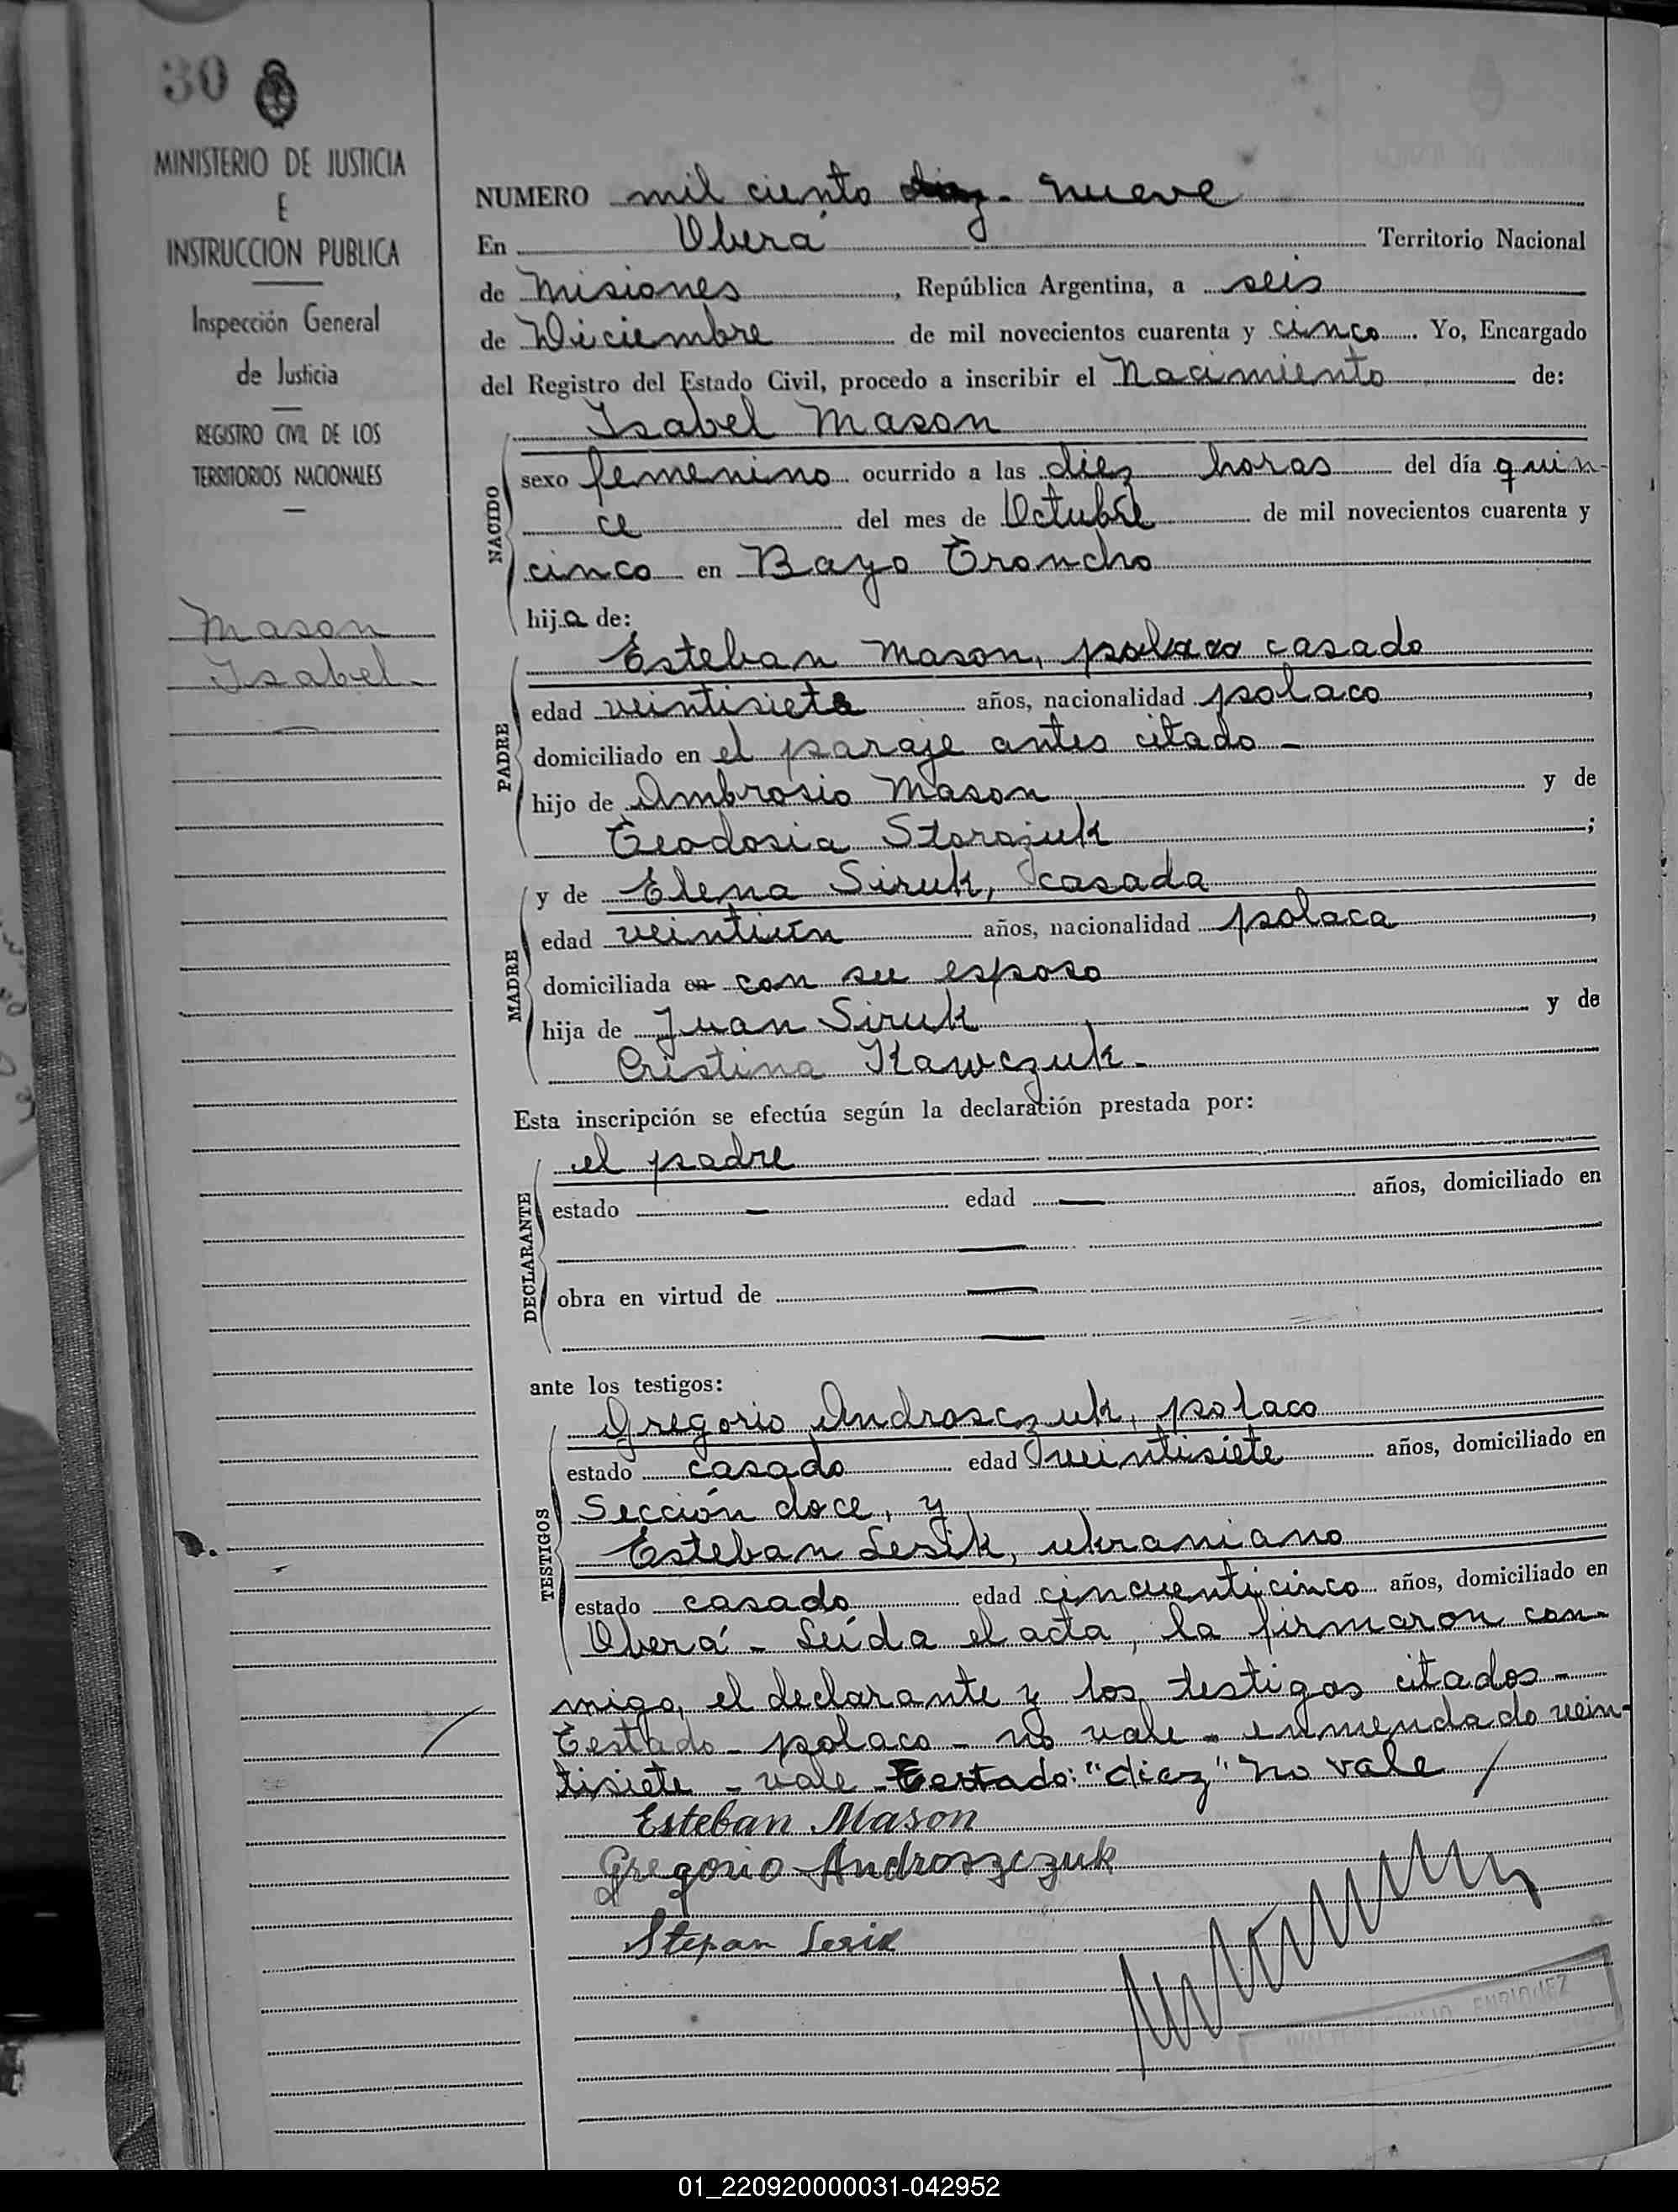 30
MINISTERIO DE JUSTICIA
E
INSTRUCCION PUBLICA
Inspección General
de Justicia
REGISTRO CIVIL DE LOS
TERRITORIOS NACIONALES
Mason
Isabel.
NUMERO mil ciento diez - nueve
En Oberá Territorio Nacional
de Misiones, República Argentina, a seis
de Diciembre de mil novecientos cuarenta y cinco. Yo, Encargado
del Registro del Estado Civil, procedo a inscribir el Nacimiento de:
Isabel Mason
NACIDO
sexo femenino ocurrido a las diez horas del día quin-
ce del mes de Octubre de mil novecientos cuarenta y
cinco en Bayo Troncho
hija de:
PADRE
Esteban Mason, polaco casado
edad veintisiete años, nacionalidad polaco,
domiciliado en el paraje antes citado -
hijo de Ambrosio Mason y de
Teodosia Starajuk;
MADRE
y de Elena Siruk, casada
edad veintiún años, nacionalidad polaca,
domiciliada en con su esposo
hija de Juan Siruk y de
Cristina Kawczuk.
Esta inscripción se efectúa según la declaración prestada por:
DECLARANTE
el padre
estado — edad — años, domiciliado en
—
obra en virtud de —
—
ante los testigos:
TESTIGOS
Gregorio Androsczuk, polaco
estado casado edad veintisiete años, domiciliado en
Sección doce, y
Esteban Lesik, ukraniano
estado casado edad cincuenticinco años, domiciliado en
Oberá - Leída el acta, la firmaron con-
migo, el declarante y los testigos citados -
Testado - polaco - no vale - enmendado vein-
tisiete - vale - Testado: "diez" no vale
Esteban Mason
Gregorio Androszczuk
Stepan Lesik
ENRIQUEZ
01_220920000031-042952